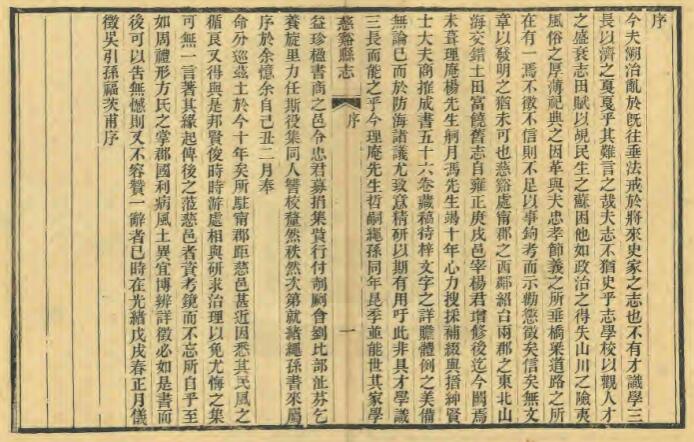 序
今夫溯治亂於旣往垂法戒於將來史家之志也不有才識學三
長以濟之戛戛乎其難言之哉夫志不猶史乎志學校以觀人才
之盛衰志田賦以覘民生之蘇困他如政治之得失山川之險夷
風俗之厚薄祀典之因革與夫忠孝節義之所垂橋梁道路之所
在有一焉不徵不信則不足以事鉤考而示勸懲徵矣信矣無文
章以發明之猶未可也慈谿處甯郡之西鄰紹台兩郡之東北山
海交錯土田富饒舊志自雍正庚戌邑宰楊君增修後迄今闕焉
未葺理庵楊先生舸月馮先生竭十年心力搜採補綴與搢紳賢
士大夫商搉成書五十六卷藏稿待梓文字之詳贍體例之美備
無論已而於防海諸議尤致意精研以期有用吁此非具才學識
三長而能之乎今理庵先生哲嗣繩孫同年是季並能世其家學
慈谿縣志
序
一
益珍楹書商之邑令忠君募捐集貲行付剞劂會劉比部沚芬乞
養旋里力任斯役集同人讐校釐然秩然次第就緒繩孫書來屬
序於余憶余自己丑二月奉
命分巡茲土於今十年矣所駐甯郡距慈邑甚近因悉其民風之
循良又得與是邦賢俊時時游處相與研求治理以免尤悔之集
可無一言著其緣起俾後之蒞慈邑者資考鏡而不忘所自乎至
如周禮形方氏之掌郡國利病風土異宜博辨詳徵必如是書而
後可以吿無憾則又不容贊一辭者已時在光緒戊戌春正月儀
徵吳引孫福茨甫序